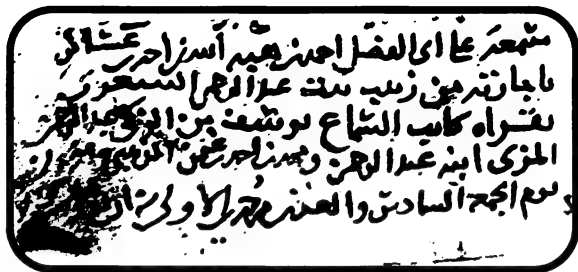 سمعه على أبي الفضل أحمد بن هبة الله بن أحمد بن عساكر
بإجازته من زينب بنت عبد الرحمن الشعري
بقراءة كاتب السماع يوسف بن الزكي عبد الرحمن
المزي ابنه عبد الرحمن ومحمد بن أحمد بن
يوم الجمعة السادس والعشرين من جمادى الأولى سنة